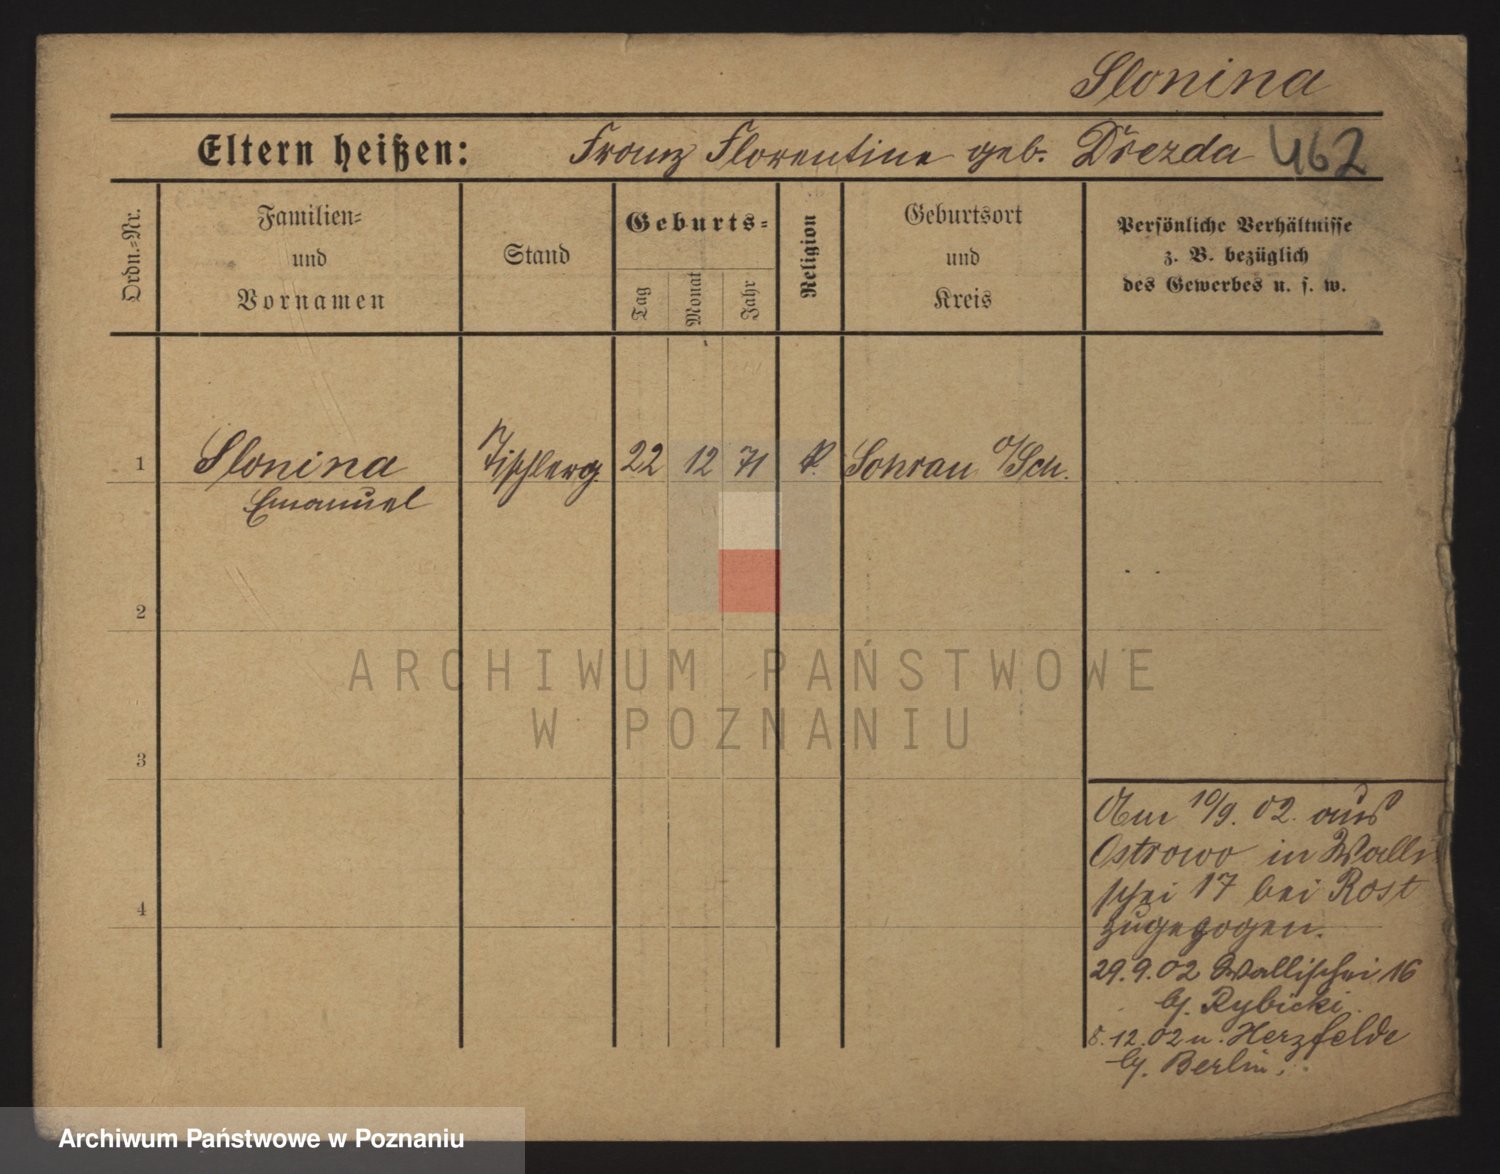 Slonina
Eltern heißen: Franz Florentine geb. Drezda 462
Ordn.-Nr.
Familien-
und
Vornamen
Stand
Geburts-
Tag
Monat
Jahr
Religion
Geburtsort
und
Kreis
Persönliche Verhältnisse
z. B. bezüglich
des Gewerbes u. s. w.
1 Slonina Tischlerg. 22 12 71 k. Sohrau O/Sch.
Emanuel
2
3
4
Am 10/9. 02. aus
Ostrowo in Walli
schei 17 bei Rost
zugezogen.
29.9.02 Wallischei 16
b/. Rybicki.
8.12.02 n. Herzfelde
b/. Berlin.
ARCHIWUM PAŃSTWOWE
W POZNANIU
Archiwum Państwowe w Poznaniu